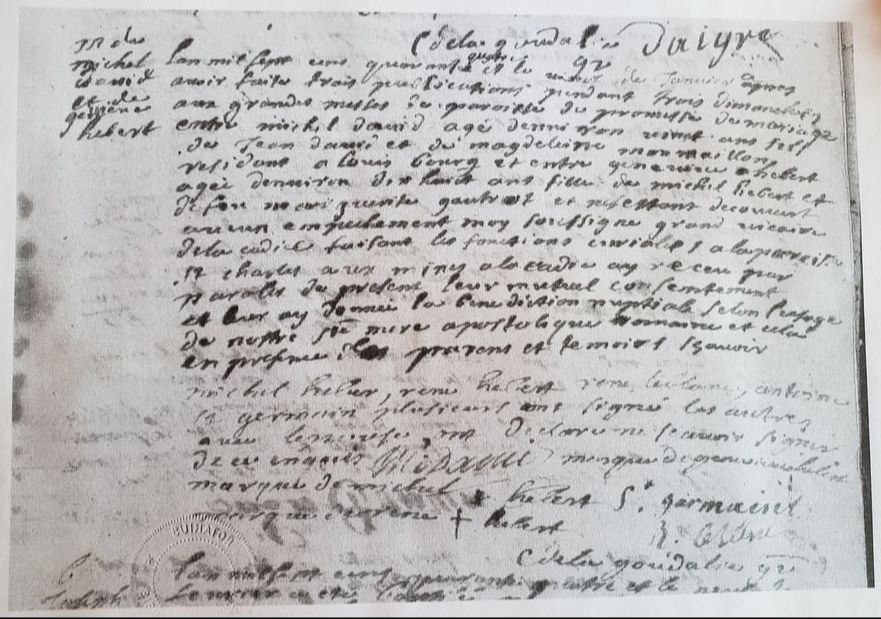 C de la goudalie gv daigre
m de
michel
david
et de
genevieve
hebert
Lan mil sept cens quarante quatre et le de Janvier apres
avoir faite trois publications pendant trois dimanches
aux grandes messes de paroisse de promesse de mariage
entre michel david agé denviron vint ans fils
de Jean david et de magdeleine monmaillon
residant a louis bourg et entre genevieve hebert
agée denviron dix huict ans fille de michel hebert et
defeu marguerite gautrot et nestant decouvert
aucun empechement moy soussigné grand vicaire
delacadie faisant les fonctions curiales a la paroisse
st charles aux mines a lacadie ay receu par
paroles de present leur mutuel consentement
et leur ay donné la benediction nuptiale selon lusage
de nostre ste mere apostolique romaine et cela
en presence des parens et temoins scavoir
michel heber, rene hebert rene leblanc, antoine
st germain plusieurs ont signé les autres
avec lepouse ont declare ne scavoir signer
de ce enquis M david marque de genevieve hebert
marque de michel + hebert St germaint
marque de rene + hebert R. leblanc
C de la goudalie gv
Lan mil sept cens quarante quatre et le
Joseph
NOTARIUS